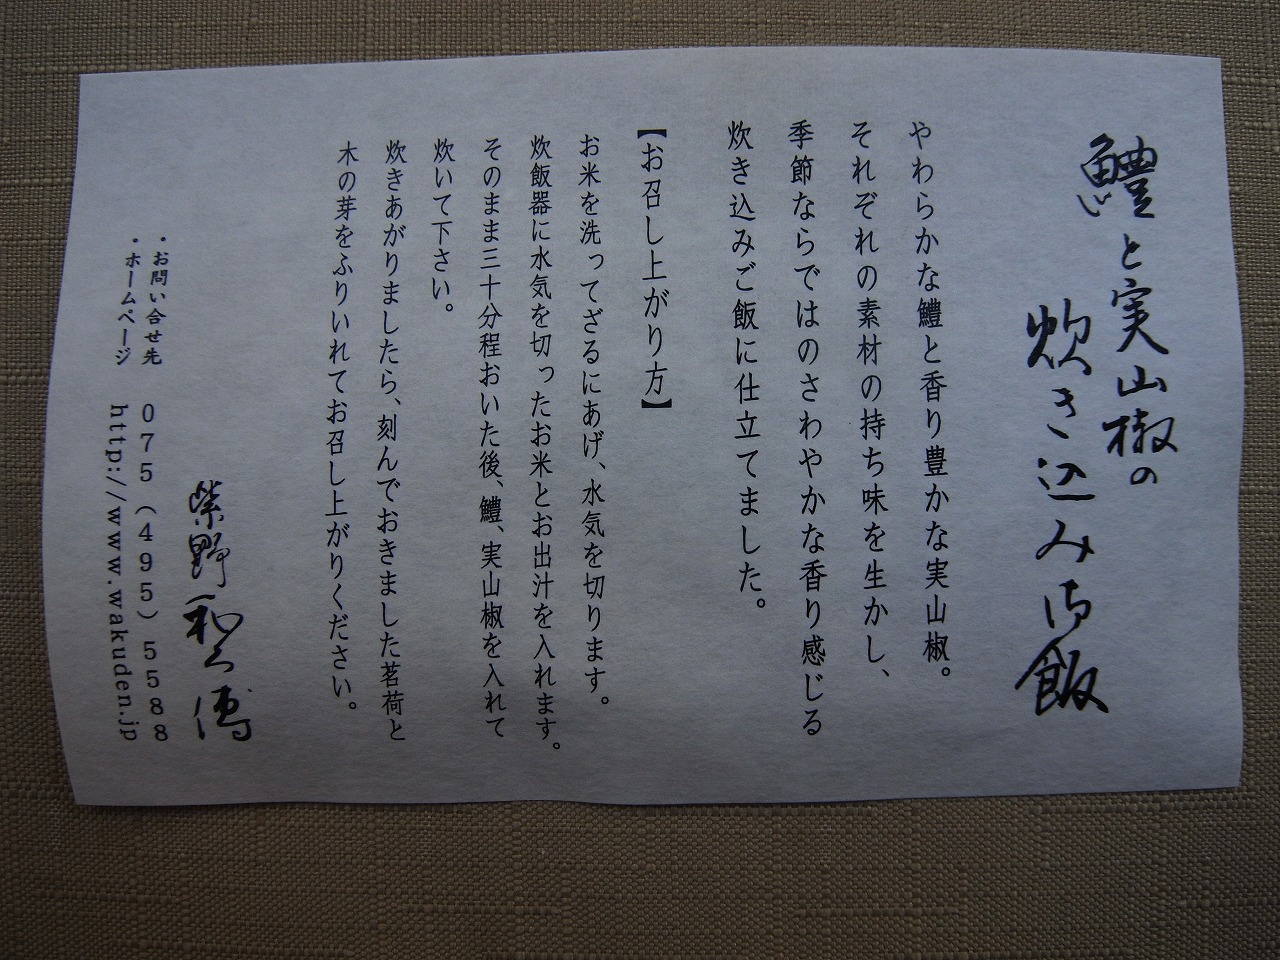 鱧と実山椒の
炊き込み御飯
やわらかな鱧と香り豊かな実山椒。
それぞれの素材の持ち味を生かし、
季節ならではのさわやかな香り感じる
炊き込みご飯に仕立てました。
【お召し上がり方】
お米を洗ってざるにあげ、水気を切ります。
炊飯器に水気を切ったお米とお出汁を入れます。
そのまま三十分程おいた後、鱧、実山椒を入れて
炊いて下さい。
炊きあがりましたら、刻んでおきました茗荷と
木の芽をふりいれてお召し上がりください。
紫野和久傳
・お問い合せ先　075(495)5588
・ホームページ　http://www.wakuden.jp